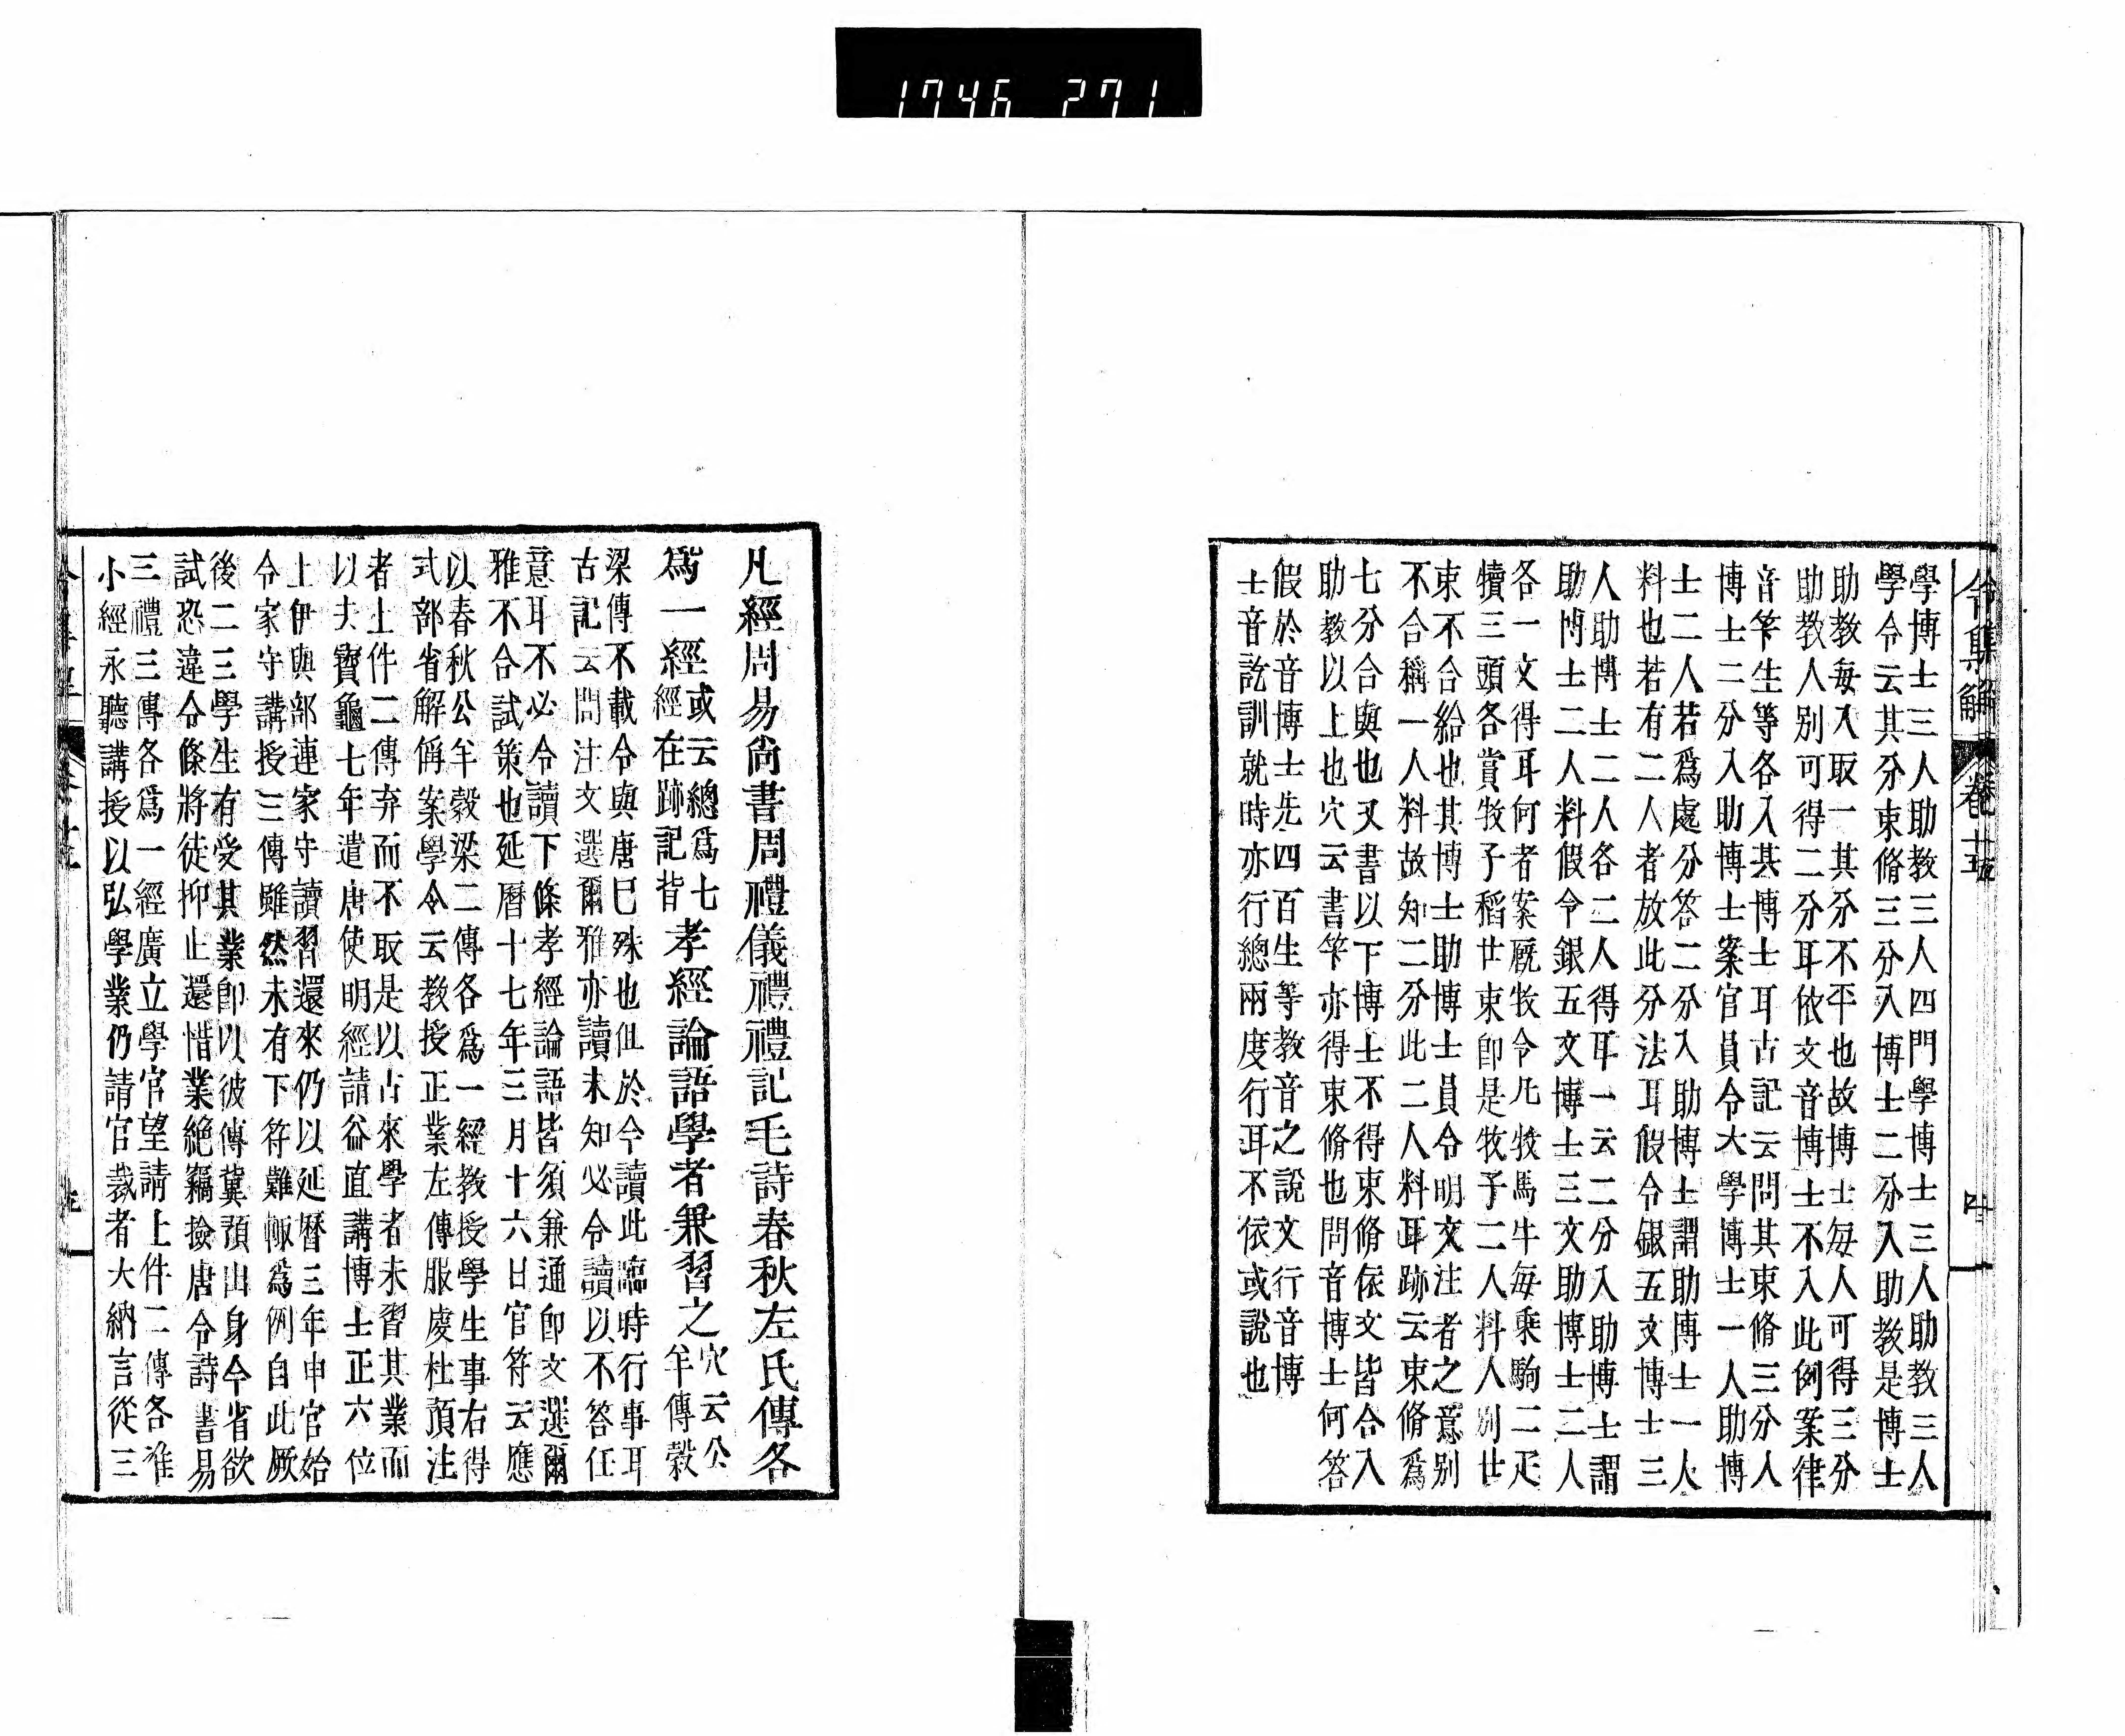 1746 271
令集解 卷十五 四
學博士三人助教三人四門學博士三人助教三人
學令云其分束脩三分入博士二分入助教是博士
助教每入取一其分不平也故博士每人可得三分
助教人別可得二分耳依文音博士不入此例案律
音筭生等各入其博士耳古記云問其束脩三分人
博士二分入助博士案官員令大學博士一人助博
士二人若爲處分答二分入助博士謂助博士一人
料也若有二人者放此分法耳假令銀五文博士三
人助博士二人各二人得耳一云二分入助博士謂
助博士二人料假令銀五文博士三文助博士二人
各一文得耳何者案厩牧令凡牧馬牛每乘駒二疋
犢三頭各賞牧子稻廿束卽是牧子二人料人別廿
束不合給也其博士助博士員令明文注者之意別
不合稱一人料故知二分此二人料耳跡云束脩爲
七分合與也又書以下博士不得束脩依文皆合入
助教以上也穴云書筭亦得束脩也問音博士何答
假於音博士先四百生等教音之說文行音博
士音訖訓就時亦行總兩度行耳不依或說也
凡經周易尙書周禮儀禮禮記毛詩春秋左氏傳各
爲一經
或云總爲七
經在跡記皆
孝經論語學者兼習之
穴云公
羊傳穀
梁傳不載令與唐巳殊也但於令讀此臨時行事耳
古記云問注文選爾雅亦讀未知必令讀以不答任
意耳不必令讀下條孝經論語皆須兼通卽文選爾
雅不合試策也延曆十七年三月十六日官符云應
以春秋公羊穀梁二傳各爲一經教授學生事右得
式部省解偁案學令云教授正業左傳服虔杜預注
者上件二傳弃而不取是以古來學者未習其業而
以去寶龜七年遣唐使明經請益直講博士正六位
上伊與部連家守讀習還來仍以延曆三年申官始
令家守講授三傳雖然未有下符難輙爲例自此厥
後二三學生有受其業卽以彼傳冀預出身今省欲
試恐違令條將徒抑止還惜業絕竊撿唐令詩書易
三禮三傳各爲一經廣立學官望請上件二傳各准
小經永聽講授以弘學業仍請官裁者大納言從三